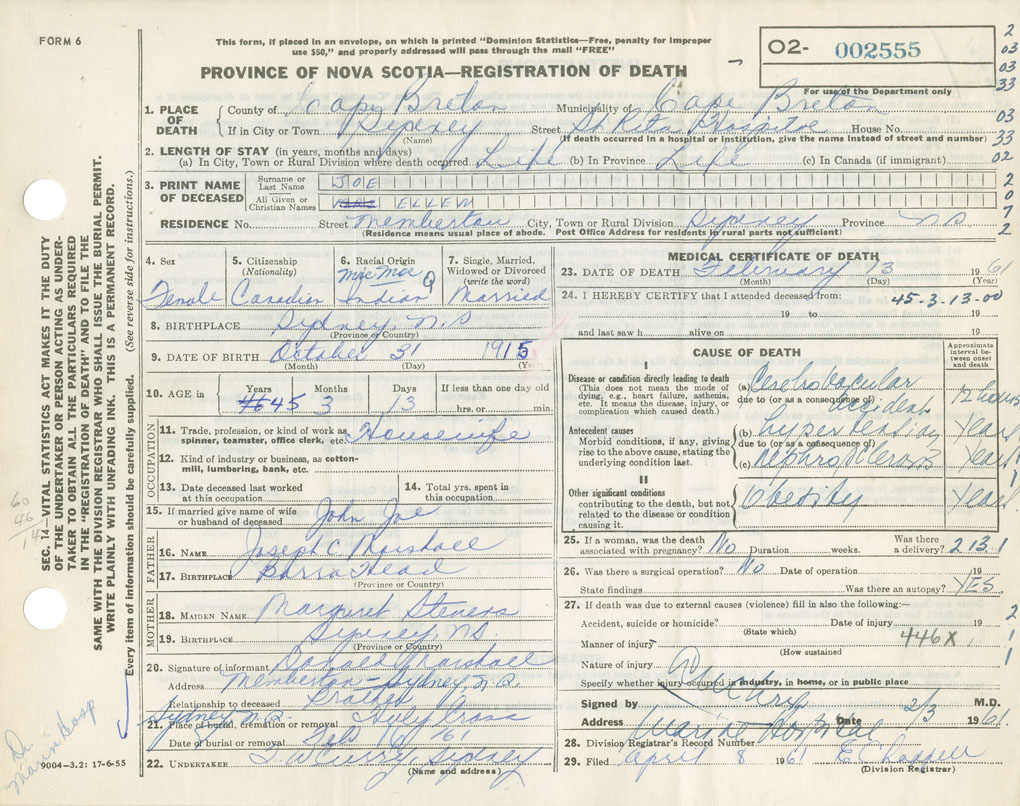 FORM 6
This form, if placed in an envelope, on which is printed "Dominion Statistics—Free, penalty for improper
use $50," and properly addressed will pass through the mail "FREE"
PROVINCE OF NOVA SCOTIA—REGISTRATION OF DEATH
02- 002555
For use of the Department only
2
03
03
33
03
33
02
2
0
7
2
1. PLACE OF DEATH
County of Cape Breton Municipality of Cape Breton
If in City or Town Sydney Street St Rita Hospital House No.
(Name) (If death occurred in a hospital or institution, give the name instead of street and number)
2. LENGTH OF STAY (in years, months and days)
(a) In City, Town or Rural Division where death occurred Life (b) In Province Life (c) In Canada (if immigrant)
3. PRINT NAME OF DECEASED
Surname or Last Name JOE
All Given or Christian Names ELLEN
RESIDENCE No. Street Memberton City, Town or Rural Division Sydney Province NS
(Residence means usual place of abode. Post Office Address for residents in rural parts not sufficient)
4. Sex
Female
5. Citizenship
(Nationality)
Canadian
6. Racial Origin
Mic Mac
Indian
7. Single, Married, Widowed or Divorced
(write the word)
Married
8. BIRTHPLACE Sydney, N.S
(Province or Country)
9. DATE OF BIRTH October 31 1915
(Month) (Day) (Yr.)
10. AGE in
Years Months Days If less than one day old
46 45 3 13 hrs. or min.
OCCUPATION
11. Trade, profession, or kind of work as spinner, teamster, office clerk, etc. Housewife
12. Kind of industry or business, as cotton-mill, lumbering, bank, etc.
13. Date deceased last worked at this occupation
14. Total yrs. spent in this occupation
15. If married give name of wife or husband of deceased John Joe
FATHER
16. NAME Joseph C Marshall
17. BIRTHPLACE Barra Head
(Province or Country)
MOTHER
18. MAIDEN NAME Margaret Stevens
19. BIRTHPLACE Sydney, NS.
(Province or Country)
20. Signature of informant Donald Marshall
Address Memberton—Sydney, N.S.
Relationship to deceased Brother
Sydney N.S.
21. Place of burial, cremation or removal Holy Cross
Date of burial or removal Feb 16/61
22. UNDERTAKER T. W Curry, Sydney
(Name and address)
MEDICAL CERTIFICATE OF DEATH
23. DATE OF DEATH February 13 1961
(Month) (Day) (Year)
24. I HEREBY CERTIFY that I attended deceased from:
45-3-13-00
19 to 19
and last saw h alive on 19
CAUSE OF DEATH
Approximate interval between onset and death
I
Disease or condition directly leading to death
(This does not mean the mode of dying, e.g., heart failure, asthenia, etc. It means the disease, injury, or complication which caused death.)
(a) Cerebrovascular
due to (or as a consequence of) accident 12 hours
Antecedent causes
Morbid conditions, if any, giving rise to the above cause, stating the underlying condition last.
(b) hypertension Years
due to (or as a consequence of)
(c) Nephrosclerosis Years
II
Other significant conditions
contributing to the death, but not related to the disease or condition causing it.
Obesity Years
25. If a woman, was the death associated with pregnancy? No Duration weeks. Was there a delivery? 2 13 1
26. Was there a surgical operation? No Date of operation 19
State findings Was there an autopsy? YES
27. If death was due to external causes (violence) fill in also the following:—
Accident, suicide or homicide? Date of injury 19
(State which)
Manner of injury 446X
(How sustained
Nature of injury
Specify whether injury occurred in industry, in home, or in public place
2
1
1
1
Signed by M.D.
Address Marine Hospital Date 2/3 1961
28. Division Registrar's Record Number
29. Filed April 8 1961
(Division Registrar)
SEC. 14—VITAL STATISTICS ACT MAKES IT THE DUTY
OF THE UNDERTAKER OR PERSON ACTING AS UNDER-
TAKER TO OBTAIN ALL THE PARTICULARS REQUIRED
IN THE "REGISTRATION OF DEATH" AND TO FILE THE
SAME WITH THE DIVISION REGISTRAR WHO SHALL ISSUE THE BURIAL PERMIT.
WRITE PLAINLY WITH UNFADING INK. THIS IS A PERMANENT RECORD.
Every item of information should be carefully supplied. (See reverse side for instructions.)
60
46
14
Marine Hosp
9004-3.2: 17-6-55